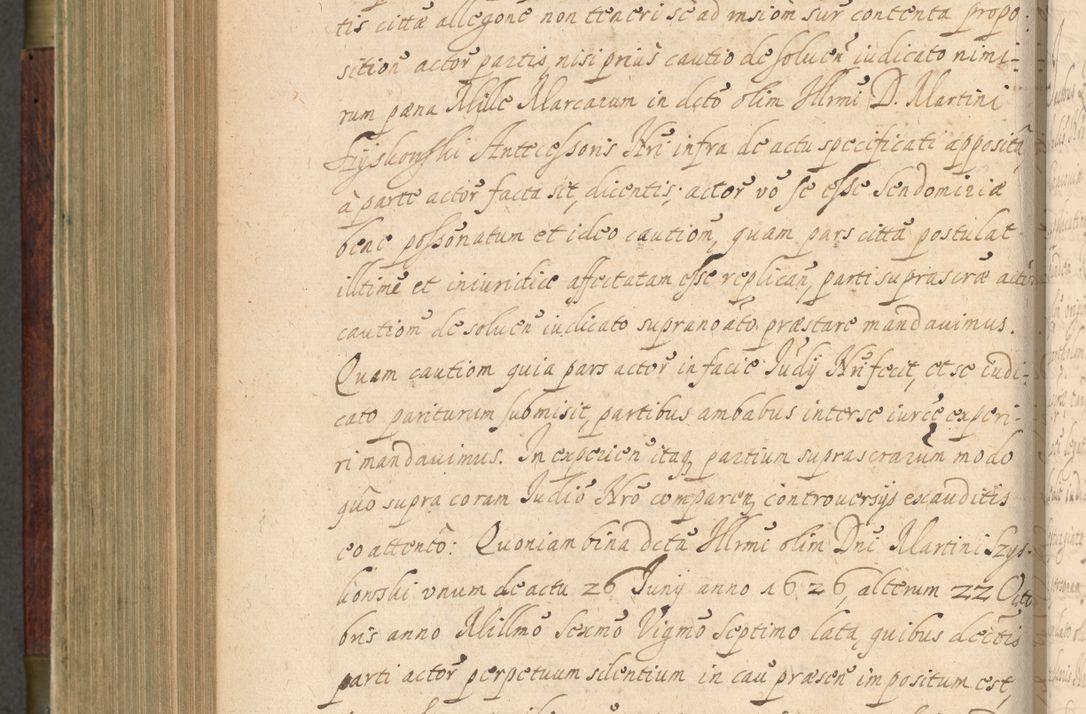 tis cittæ allegone non teneri se ad insiom sur contenta propo
sitione actor partis, nisi prius cautio de solven iudicato nimi-
rum pæna Mille Marcarum in dcto olim Illrmi D. Martini
Szyszkowski Antecessoris Nri infra de actu specificati apposita
à parte actor facta sit, dicentis; actor vo se esse Sendomiriæ
bene possonatum et ideo caution, quam pars citta postulat
illtime et iniuridice affectatam esse replican, parti suprascræ actor
cautiom de solven iudicato supranoato præstare mandavimus.
Quam cautiom quia pars actor in facie Judij Nri fecit, et se iudi-
cato pariturum submisit, partibus ambabus inter se iurce experi-
ri mandavimus. In experien itaq partium suprascrarum modo
quo supra coram Judio Nro comparen, controversijs exauditis
eo attento: Quoniam bina dcta Illrmi olim Dni Martini Szys-
kowski vnum de actu 26 Junij anno 1626, alterum 22 Octo
bris anno Millmo Sexmo Vigmo Septimo lata, quibus dectis
parti actor perpetuum silentium in cau præsen impositum est,